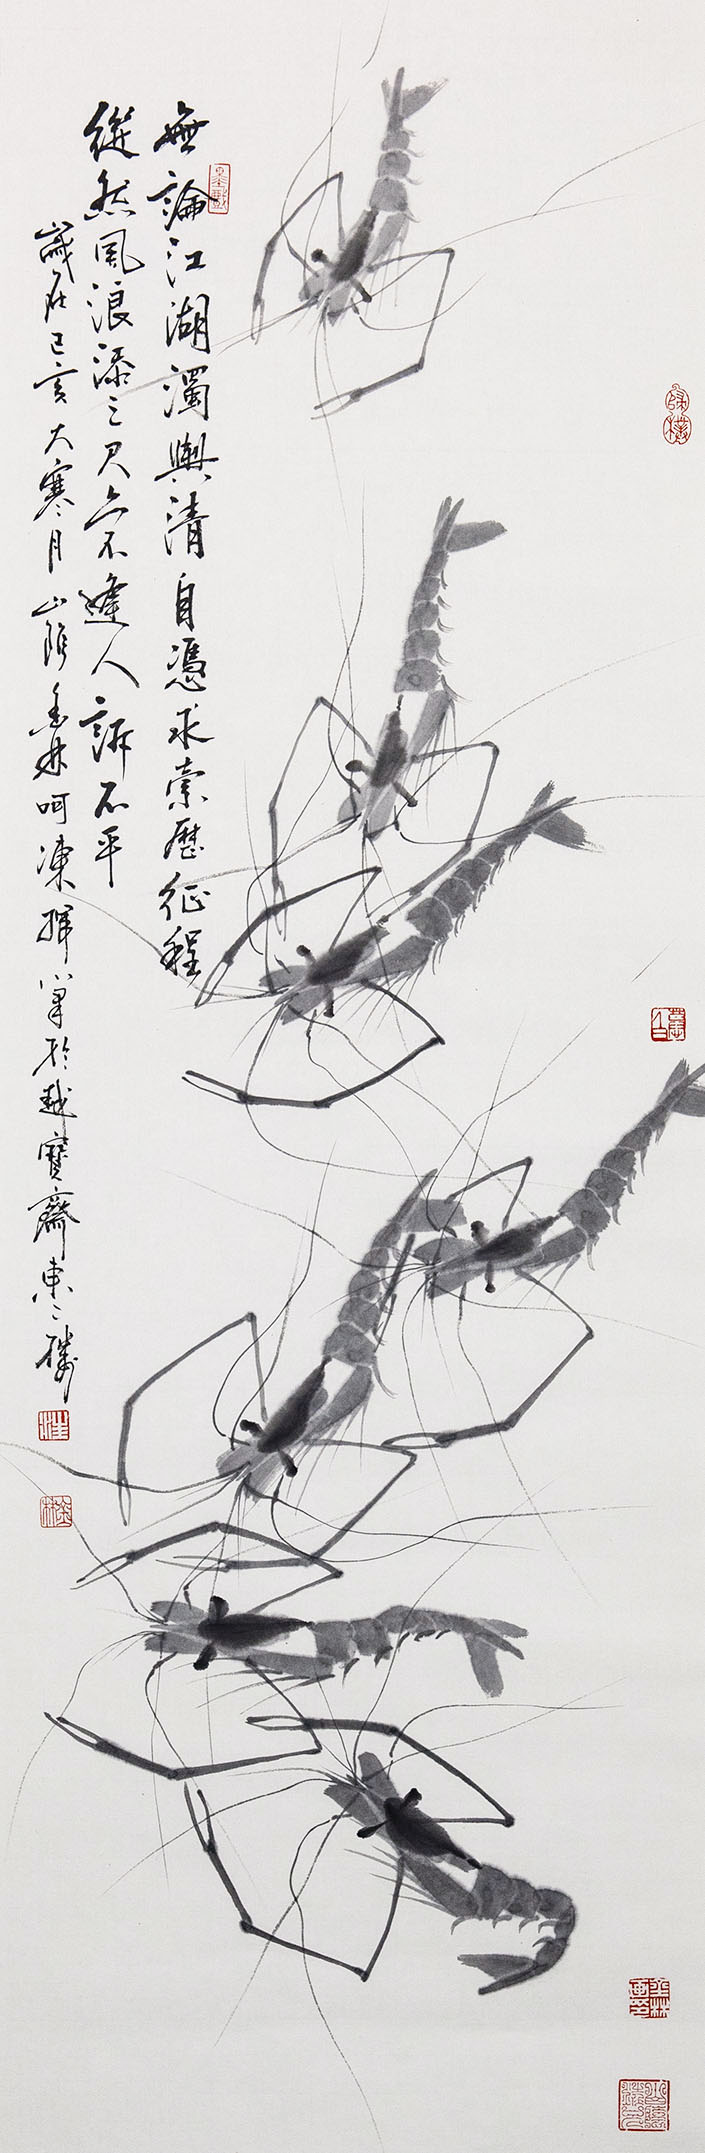 無論江湖濁與清自憑求索歷征程
縱然風浪添三尺亦不逢人訴不平
歲在己亥大寒月山陰金林呵凍揮筆於越寶齋東之機